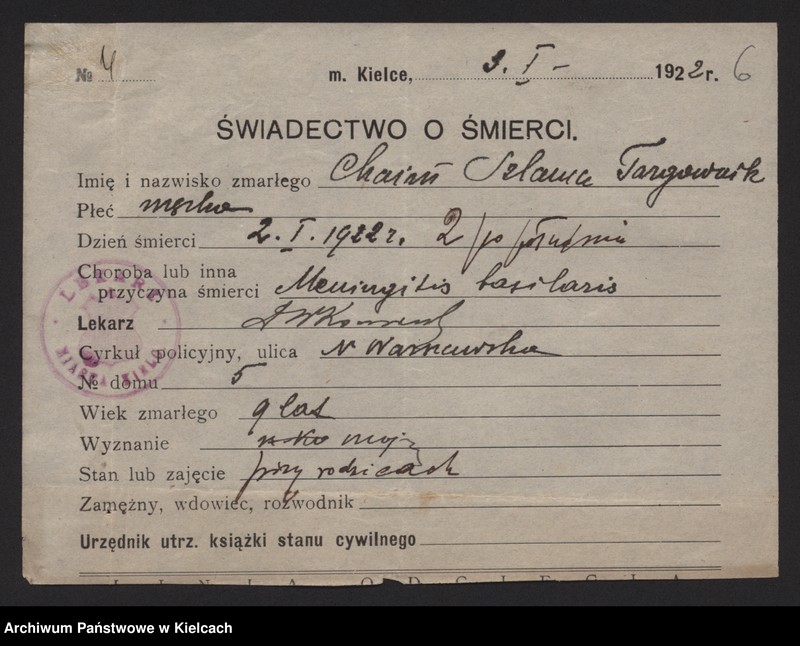 № 4 m. Kielce, 3. I - 1922 r. 6
ŚWIADECTWO O ŚMIERCI.
Imię i nazwisko zmarłego Chaim Szlama Targownik
Płeć męska
Dzień śmierci 2. I. 1922 r. 2 po południu
Choroba lub inna
przyczyna śmierci Meningitis basilaris
Lekarz
Cyrkuł policyjny, ulica N Warszawska
№ domu 5
Wiek zmarłego 9 lat
Wyznanie mojż
Stan lub zajęcie przy rodzicach
Zamężny, wdowiec, rozwodnik
Urzędnik utrz. książki stanu cywilnego
LEKARZ MIASTA KIELC
Archiwum Państwowe w Kielcach